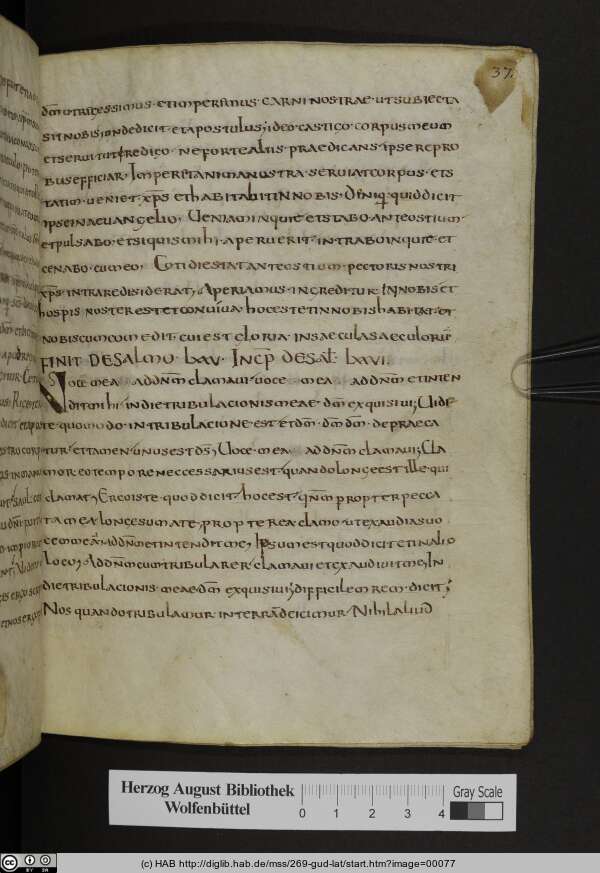 37.
dm uitricessimus · et imperfimus · carni nostrae · ut subiecta
sit nobis inde dicit · et apostulus; ideo castigo · corpus meum
et seruituti redigo · ne forte aliis · praedicans · ipse repro
bus efficiar; Imperfi anima nostra · seruiat corpus · et s
tatim · ueniet · xps et habitabit in nobis · Deniq · quid dicit
ipse in aeuangelio; Ueniam inquit et stabo · ante ostium ·
et pulsabo · et si quis mihi · aperuerit · intrabo inquit · et
cenabo · cum eo; Cotidie stat ante ostium · pectoris nostri
xps · intrare desiderat; Aperiamus · ingreditur · In nobis et
hospis noster est et conuiua · hoc est et in nobis habitat · et
nobiscum comedit · cui est gloria · in saecula saeculorum
FINIT DE SALMO · LXV · INCP DE SAL LXVI ·
Voce mea ad dnm clamaui uoce mea ad dnm et inten
dit mihi in die tribulacionis meae · dm exquisiui; Uide
te quomodo · in tribulacione · est et dm · dm dm · depraeca
tur · et tamen · unus est ds; Uoce mea ad dnm clamaui; Cla
mor · eo tempore neccessarius est quando longe est ille · qui
clamat; Ergo iste quod dicit · hoc est · qnm propter pecca
ta mea longe sum a te; propterea clamo · ut exaudias uo
cem meam · Ad dnm et intendit me; Ipsum est quod dicit et in alio
loco; Ad dnm cum tribularer · clamaui et exaudiuit me; In
die tribulacionis · meae · dm exquisiui; difficilem rem · dicit;
Nos quando tribulamur · in terra deicimur · Nihil aliud
Herzog August Bibliothek
Wolfenbüttel
0 1 2 3 4
Gray Scale
(c) HAB http://diglib.hab.de/mss/269-gud-lat/start.htm?image=00077